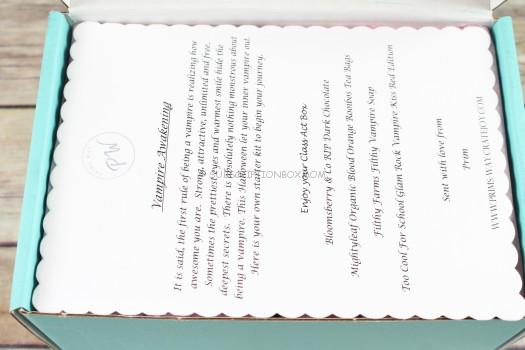 Vampire Awakening
It is said, the first rule of being a vampire is realizing how
awesome you are. Strong, attractive, unlimited and free.
Sometimes the prettiest eyes and warmest smile hide the
deepest secrets. There is absolutely nothing monstrous about
being a vampire. This Halloween let your inner vampire out.
Here is your own starter kit to begin your journey.
Enjoy your Class Act Box
Bloomsberry & Co RIP Dark Chocolate
Mightyleaf Organic Blood Orange Rooibos Tea Bags
Filthy Farms Filthy Vampire Soap
Too Cool For School Glam Rock Vampire Kiss Red Edition
Sent with love from
Prim
WWW.PRIMS-WAY.CRATEJOY.COM